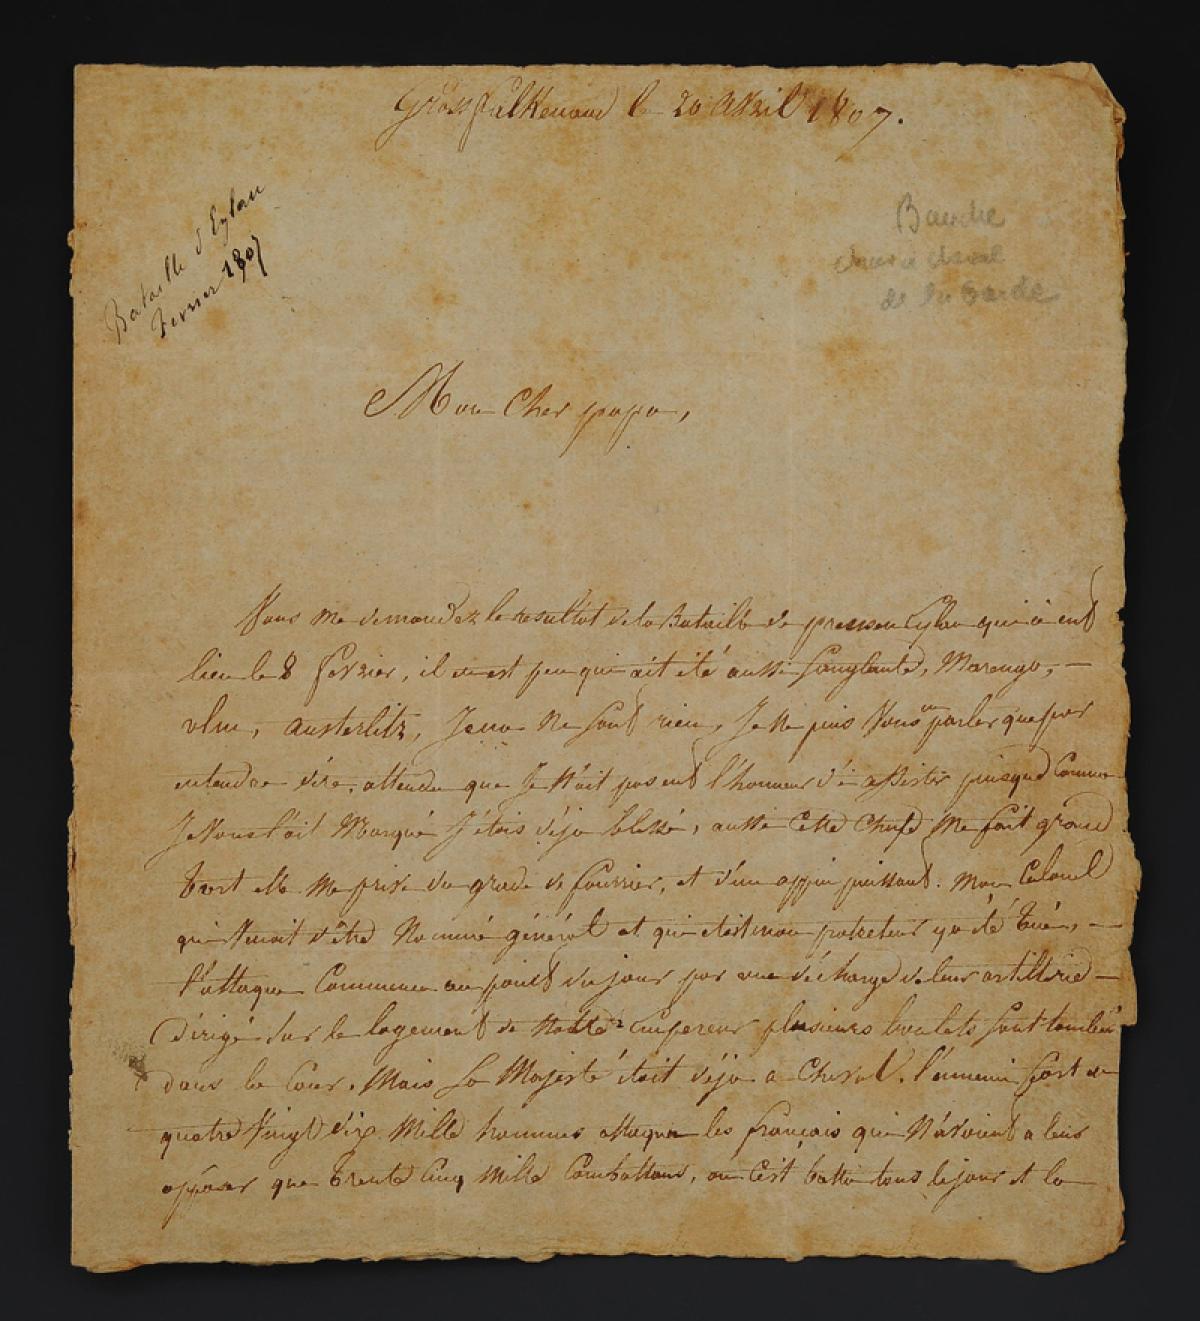 Gross falKenaud le 20 avril 1807.
Bataille d'Eylau
fevrier 1807
Bauche
chas. à cheval
de la Garde
Mon cher papa,
Vous me demandez le resultat de la Bataille de preusen Eylau qui à eut
lieu le 8 fevrier, il en est peu qui ait été aussi sanglante, Marengo,
ulm, austerlitz, Jena ne sont rien, Je ne puis Vous en parler que par
entendre dire, attendu que Je n'ait pas eut l'honneur d'i assister puisque Comme
Je Vous l'ait Marqué J'étois déja blessé, aussi cette chose me fait grand
tort elle me prive du grade de fourrier, et d'un appui puissant. mon Colonel
qui Venoit d'être Nommé général et qui etoit mon protecteur y a été tué,
l'attaque Commença au point du jour par une décharge de leur artillerie
dirigé sur le logement de Notre Empereur plusieurs boulets sont tombés
dans la Cour. Mais Sa Majesté étoit déja a cheval. l'ennemi fort de
quatre Vingt dix Mille hommes attaqua les francois qui N'avoient a leur
opposer que trente Cinq Mille Combattans, on c'est battu tous le jour et la